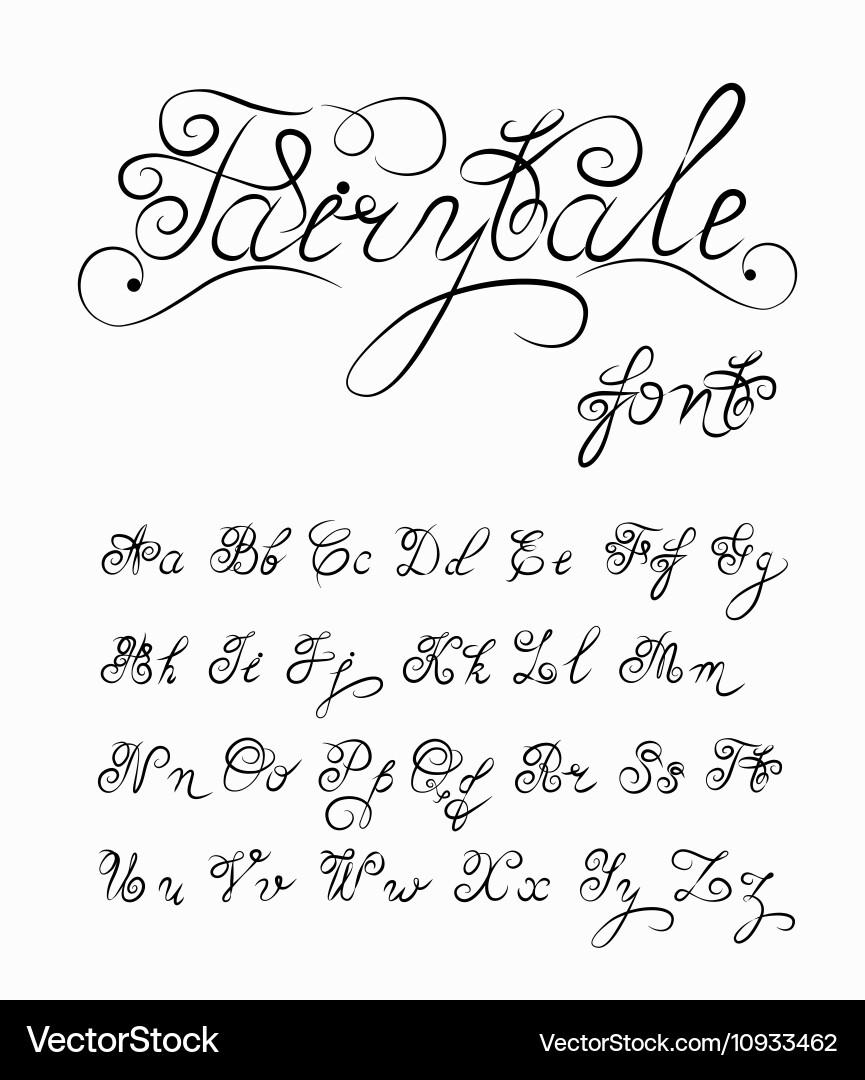 Fairytale
font
Aa Bb Cc Dd Ee Ff Gg
Hh Ii Jj Kk Ll Mm
Nn Oo Pp Qq Rr Ss Tt
Uu Vv Ww Xx Yy Zz
VectorStock® VectorStock.com/10933462